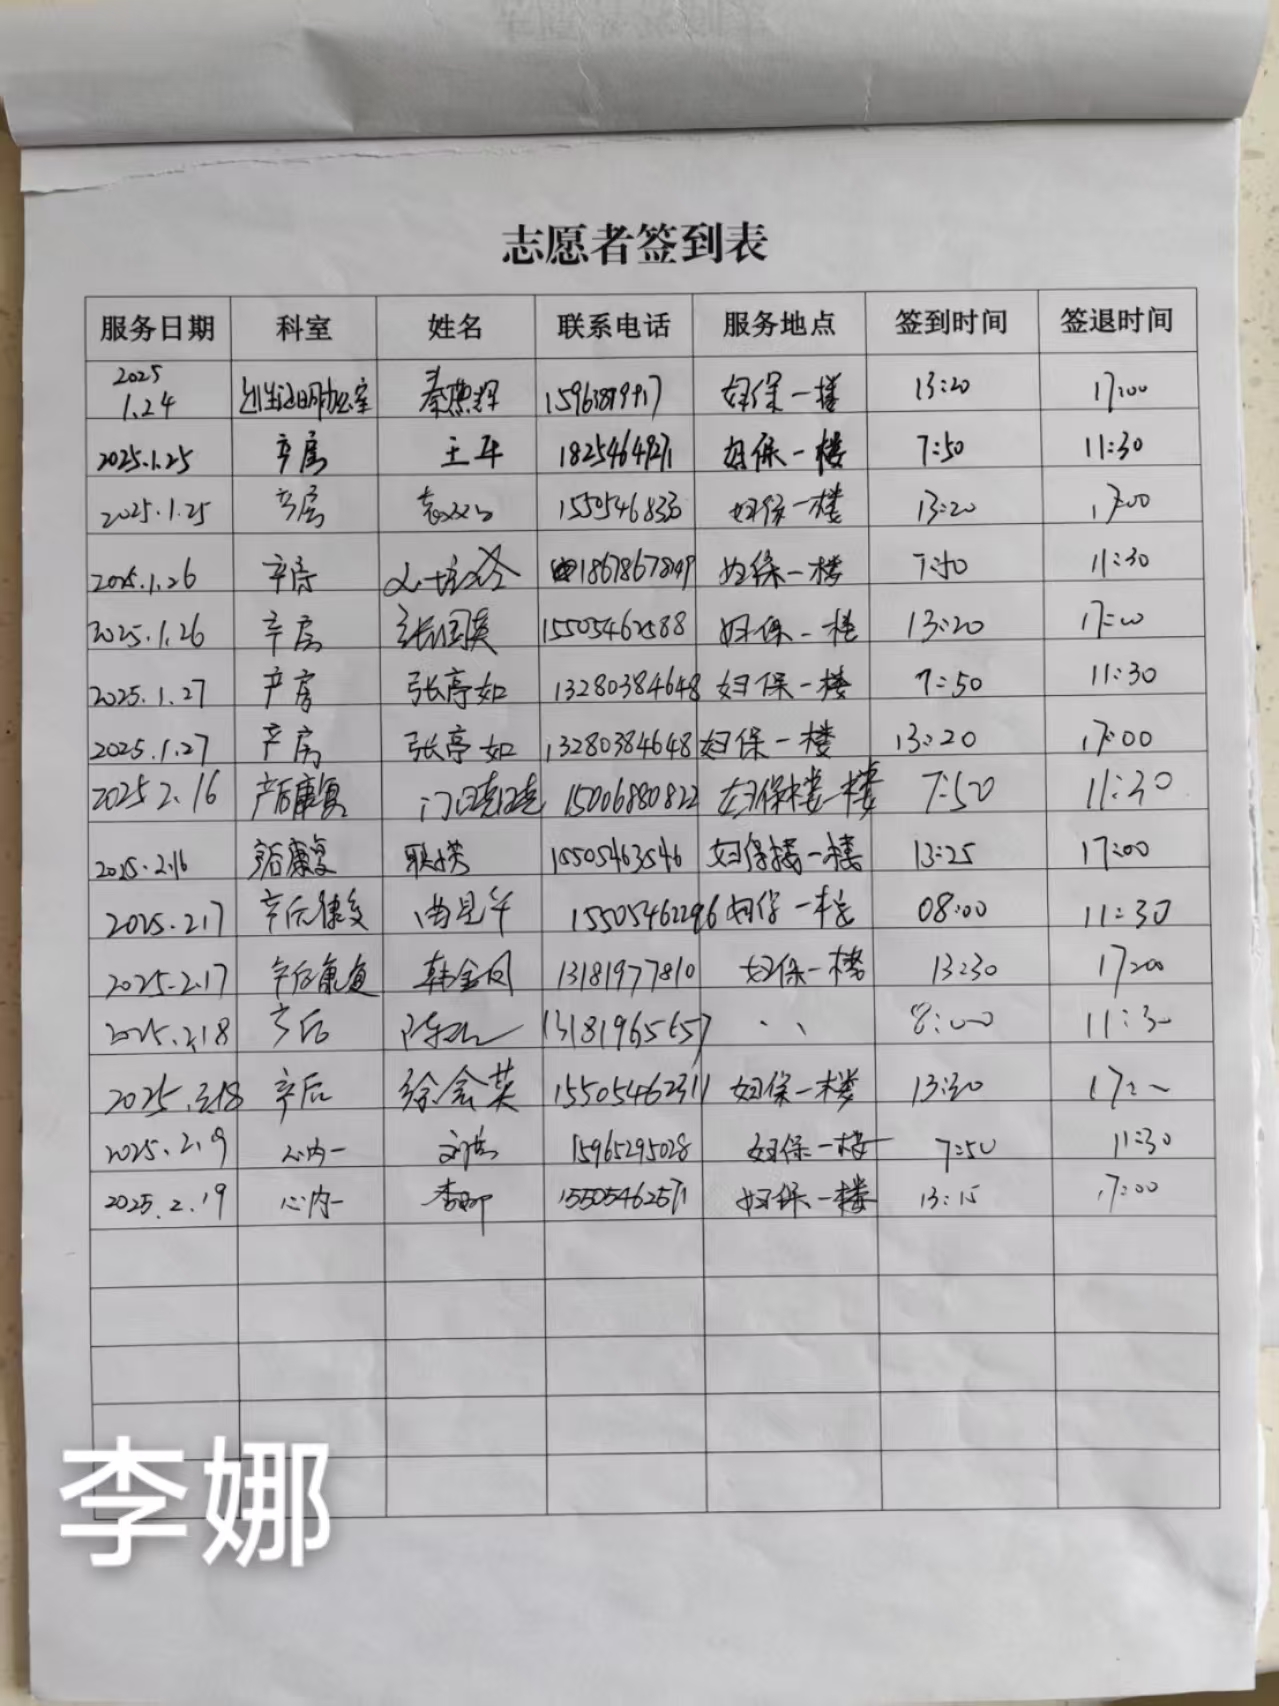 志愿者签到表
服务日期 科室 姓名 联系电话 服务地点 签到时间 签退时间
2025 1.24 妇保一楼 13:20 17:00
2025.1.25 产房 王平 妇保一楼 7:50 11:30
2025.1.25 产房 妇保一楼 13:20 17:00
2025.1.26 产房 妇保一楼 7:50 11:30
2025.1.26 产房 张国英 妇保一楼 13:20 17:00
2025.1.27 产房 张亭如 13280384648 妇保一楼 7:50 11:30
2025.1.27 产房 张亭如 13280384648 妇保一楼 13:20 17:00
2025 2.16 产后康复 15006880822 妇保楼一楼 7:50 11:30
2025.2.16 产后康复 15505463546 妇保楼一楼 13:25 17:00
2025.2.17 产后康复 曲星华 15505462296 妇保一楼 08:00 11:30
2025.2.17 产后康复 韩金凤 13181977810 妇保一楼 13:30 17:00
2025.2.18 产后 8:00 11:30
2025.2.18 产后 徐会英 15505462311 妇保一楼 13:30
2025.2.19 心内一 15965295028 妇保一楼 7:50 11:30
2025.2.19 心内一 李娜 15505462571 妇保一楼 13:15 17:00
李娜